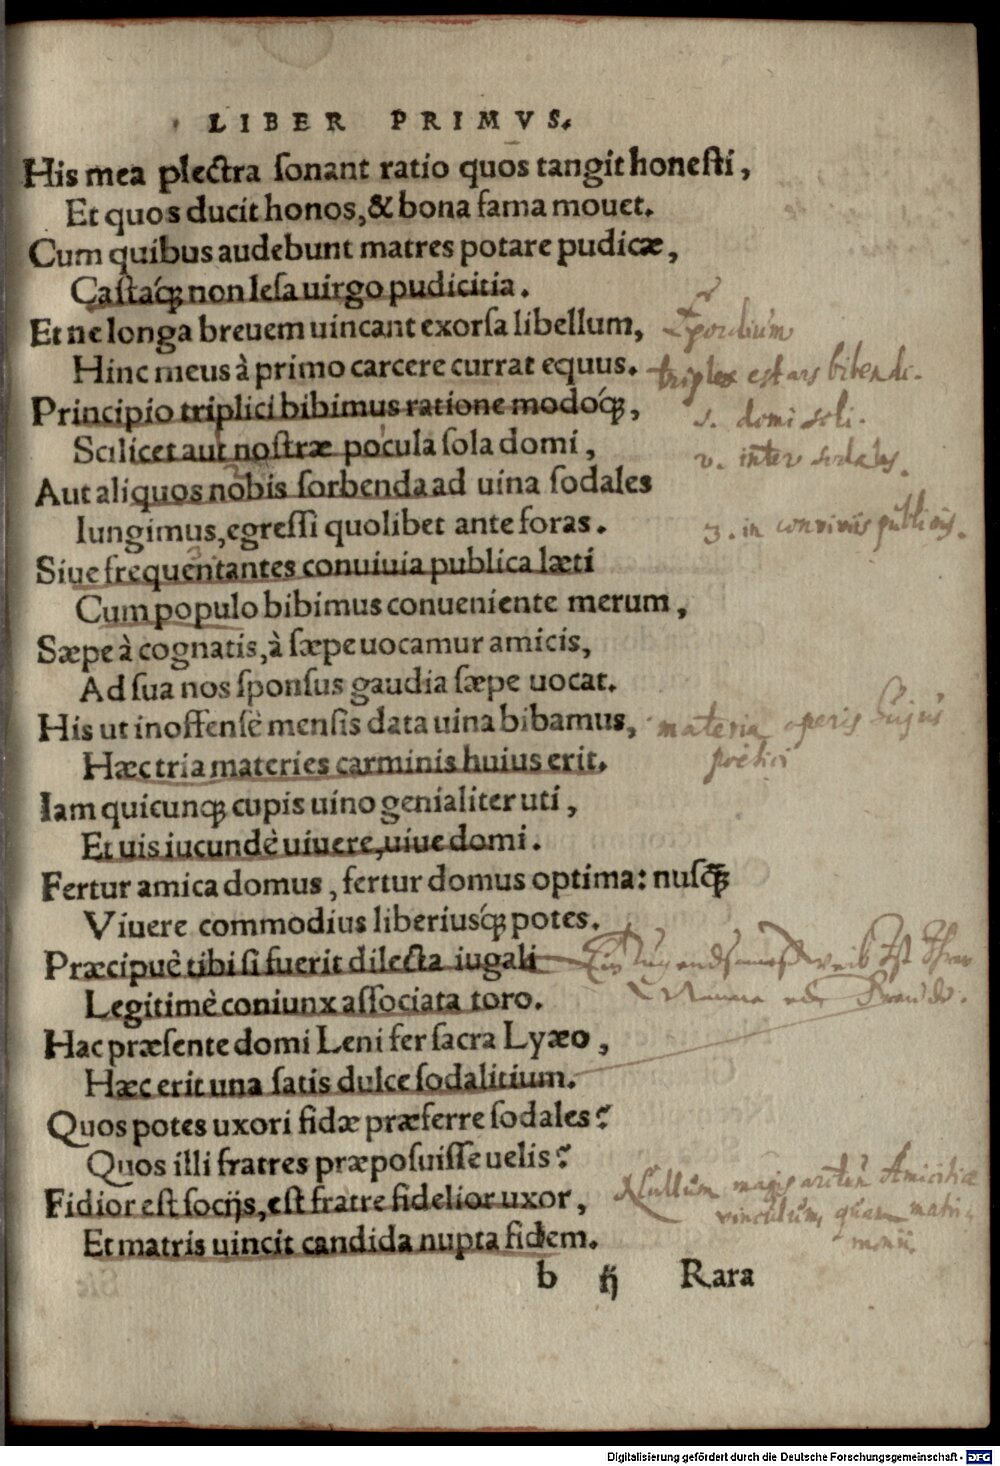 LIBER PRIMVS.
His mea plectra sonant ratio quos tangit honesti,
Et quos ducit honos, & bona fama mouet.
Cum quibus audebunt matres potare pudicæ,
Castaq́; non lesa uirgo pudicitia.
Et ne longa breuem uincant exorsa libellum,
Exordium
Hinc meus à primo carcere currat equus.
triplex est ars bibendi.
Principio triplici bibimus ratione modoq́;,
1. domi soli.
Scilicet aut nostræ pocula sola domi,
2. inter sodales.
Aut aliquos nobis sorbenda ad uina sodales
Iungimus, egressi quolibet ante foras.
3. in conviviis publicis.
Siue frequentantes conuiuia publica læti
Cum populo bibimus conueniente merum,
Sæpe à cognatis, à sæpe uocamur amicis,
Ad sua nos sponsus gaudia sæpe uocat.
His ut inoffensè mensis data uina bibamus,
materia operis hujus
Hæc tria materies carminis huius erit.
poëtici
Iam quicunq; cupis uino genialiter uti,
Et uis iucundè uiuere, uiue domi.
Fertur amica domus, fertur domus optima: nusq̃;
Viuere commodius liberiusq́; potes.
Præcipuè tibi si fuerit dilecta iugali
Legitimè coniunx associata toro.
Hac præsente domi Leni fer sacra Lyæo,
Hæc erit una satis dulce sodalitium.
Quos potes uxori fidæ præferre sodales?
Quos illi fratres præposuisse uelis?
Nullum magis arctum Amicitiæ
Fidior est socijs, est fratre fidelior uxor,
vinculum, quam matri-
Et matris uincit candida nupta fidem.
monii.
b ij Rara
Digitalisierung gefördert durch die Deutsche Forschungsgemeinschaft - DFG